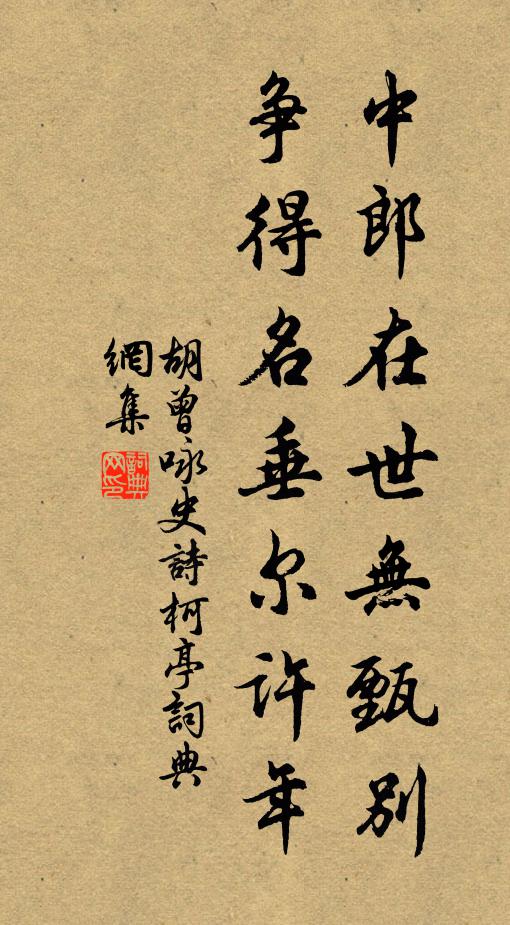 中郎在世無甄別
争得名垂尔許年
胡曾咏史詩柯亭詞典
網集
詞典
网印